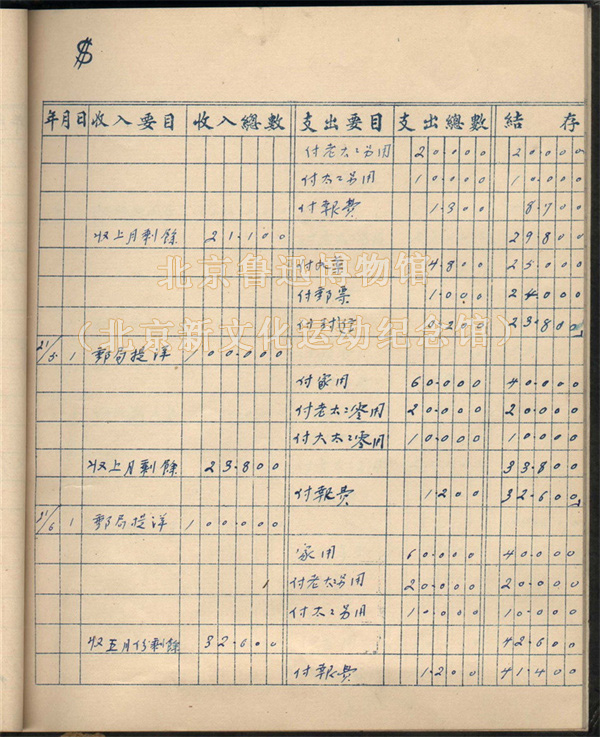 $
年月日 收入要目 收入總數 支出要目 支出總數 結存
付老太:另用 20.000 20.000
付太:另用 10.000 10.000
付報費 1.300 8.700
收上月剩餘 21.100 29.800
付 4.800 25.000
付郵票 1.000 24.000
付 0.200 23.800
北京鲁迅博物馆
（北京新文化运动纪念馆）
21/5 1 郵局提洋 100.000
付家用 60.000 40.000
付老太:零用 20.000 20.000
付大太:零用 10.000 10.000
收上月剩餘 23.800 33.800
付報費 1.200 32.600
21/6 1 郵局提洋 100.000
家用 60.000 40.000
付老太另用 20.000 20.000
付太:另用 10.000 10.000
收五月份剩餘 32.600 42.600
付報費 1.200 41.400